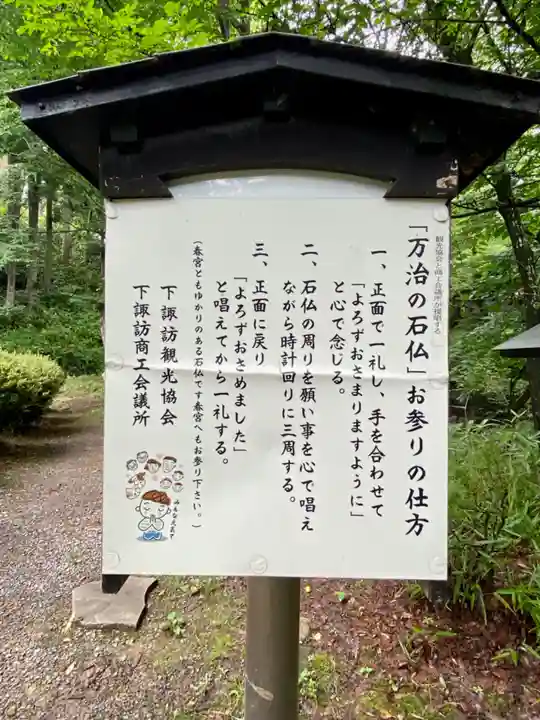 観光協会と商工会議所が提唱する
「万治の石仏」お参りの仕方
一、正面で一礼し、手を合わせて
「よろずおさまりますように」
と心で念じる。
二、石仏の周りを願い事を心で唱え
ながら時計回りに三周する。
三、正面に戻り
「よろずおさめました」
と唱えてから一礼する。
（春宮ともゆかりのある石仏です春宮へもお参り下さい。）
下諏訪観光協会
下諏訪商工会議所
みんなえがお